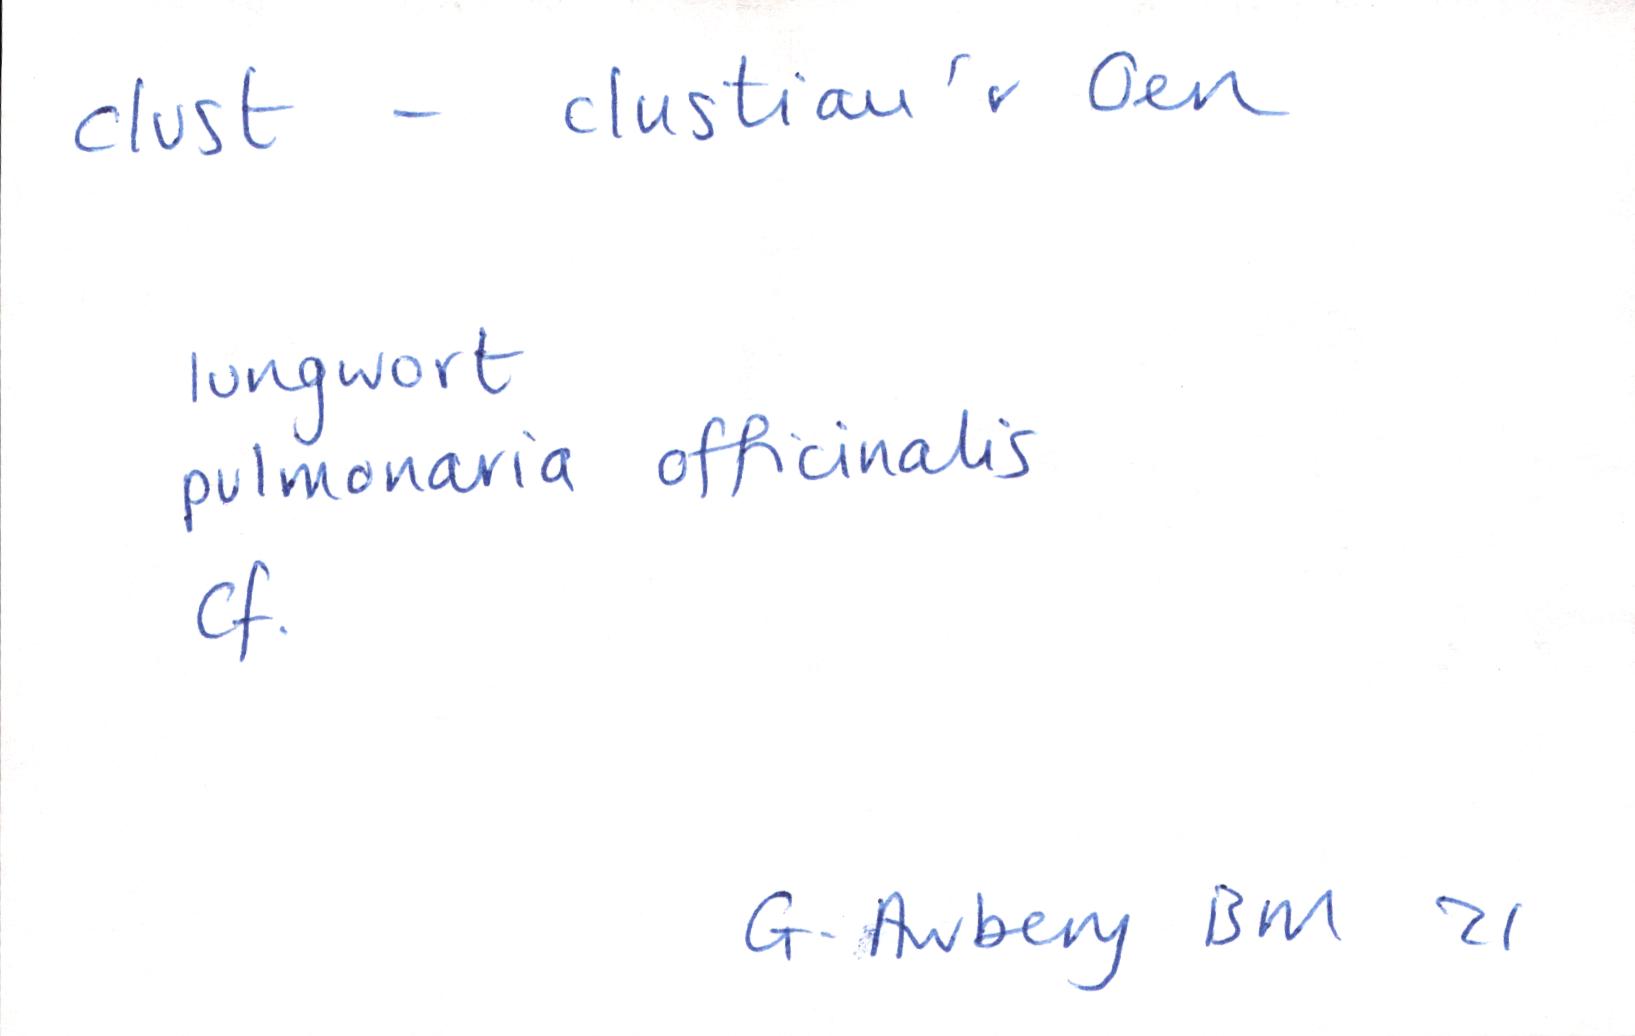 clust - clustiau'r Oen
lungwort
pulmonaria officinalis
cf.
G. Awbery BM 21